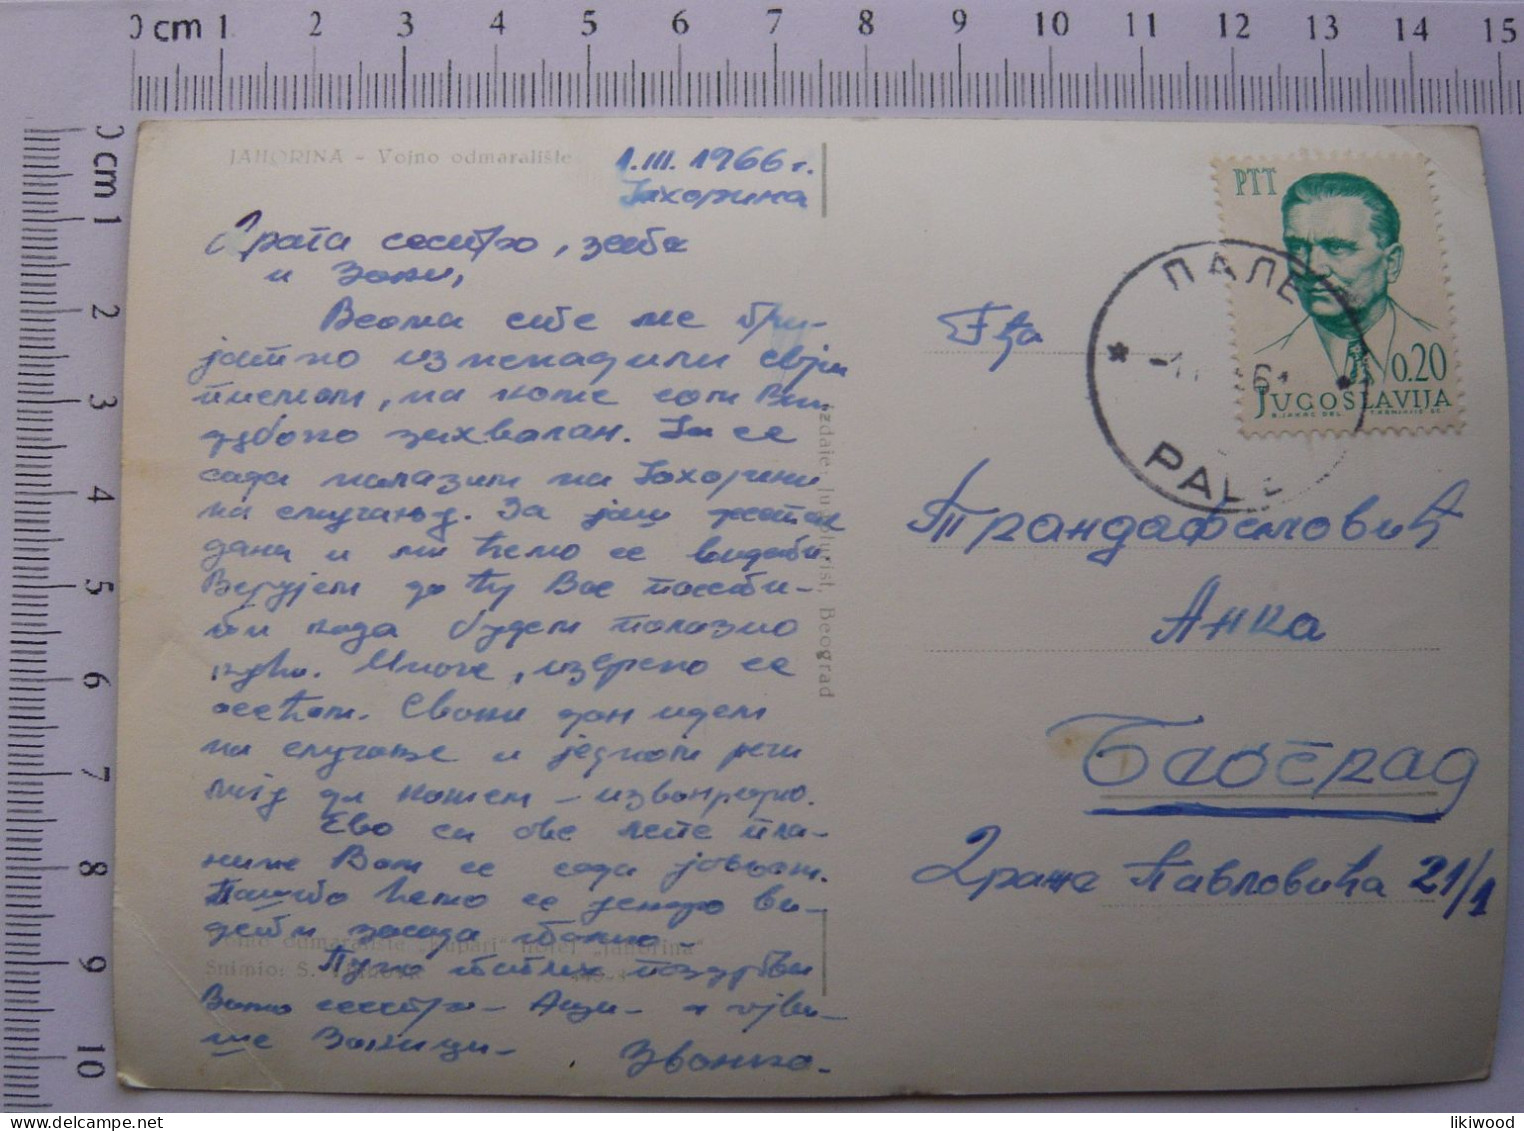 0 cm 1 2 3 4 5 6 7 8 9 10 11 12 13 14 15
0 cm 1 2 3 4 5 6 7 8 9 10
JAHORINA – Vojno odmaralište
1.III.1966 г.
Јахорина
Драга сестро, зете
и Зоки,
Веома сте ме при-
јатно изненадили својим
писмом, на коме сам Вам
дубоко захвалан. Ја се
сада налазим на Јахорини
на смучању. За још десетак
дана и ми ћемо се видети
Верујем да ћу Вас посети-
ти када будем полазио
кући. Иначе, изврсно се
осећам. Сваки дан идем
на смучање и једном речи
да кажем – изванредно.
Ево са ове лепе пла-
нине Вам се сада јављам.
ћемо се ви-
дети засада толико –
Пуно топлих поздрава
Вама сестро – – и
Звонко.
odmaralište hotel „Jahorina"
Snimio: S.
izdaje: Beograd
PTT
0.20
JUGOSLAVIJA
ПАЛЕ
PALE
Гђа
Трандафиловић
Анка
Београд
Драже Павловића 21/1
likiwood